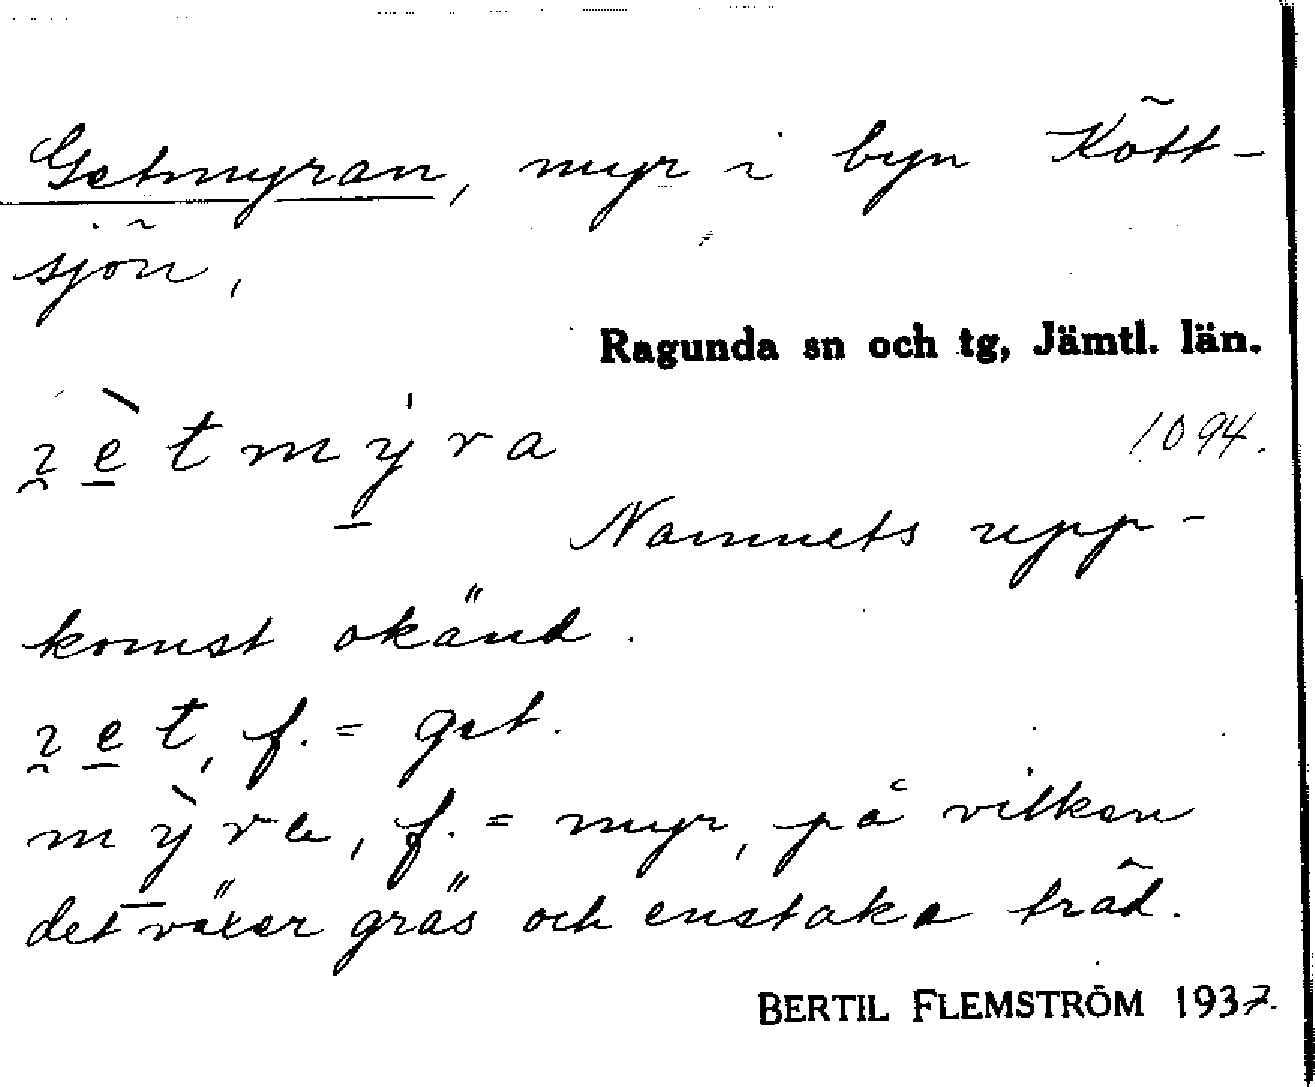 Getmyran, myr i byn Kött-
sjön,
Ragunda sn och tg, Jämtl. län.
1094.
Namnets upp-
komst okänd.
f. = get.
f. = myr, på vilken
det växer gräs och enstaka träd.
BERTIL FLEMSTRÖM 1937.